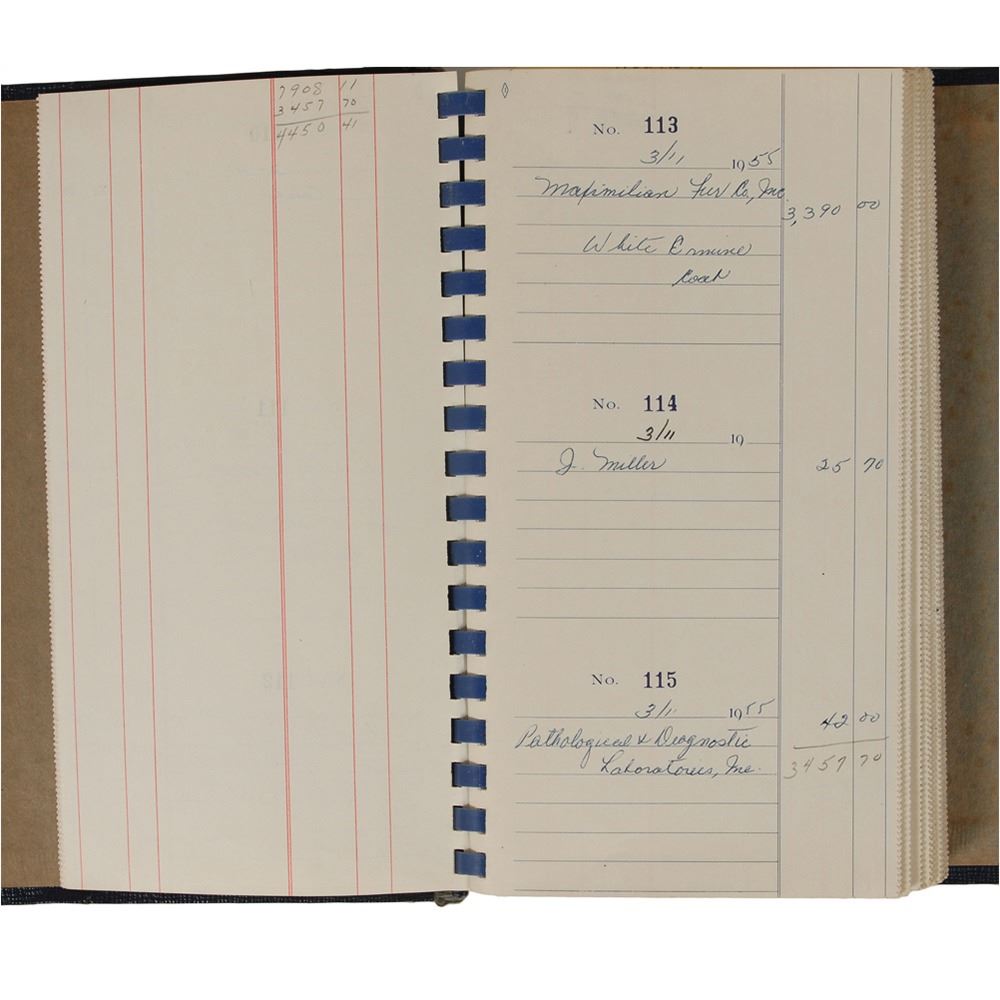 7908 11
3457 70
4450 41
No. 113
3/11 1955
Maximilian Fur Co., Inc.
3,390 00
White Ermine
Coat
No. 114
3/11 19
J. Miller 25 70
No. 115
3/11 1955
42 00
Pathological & Diagnostic
Laboratories, Inc. 3457 70